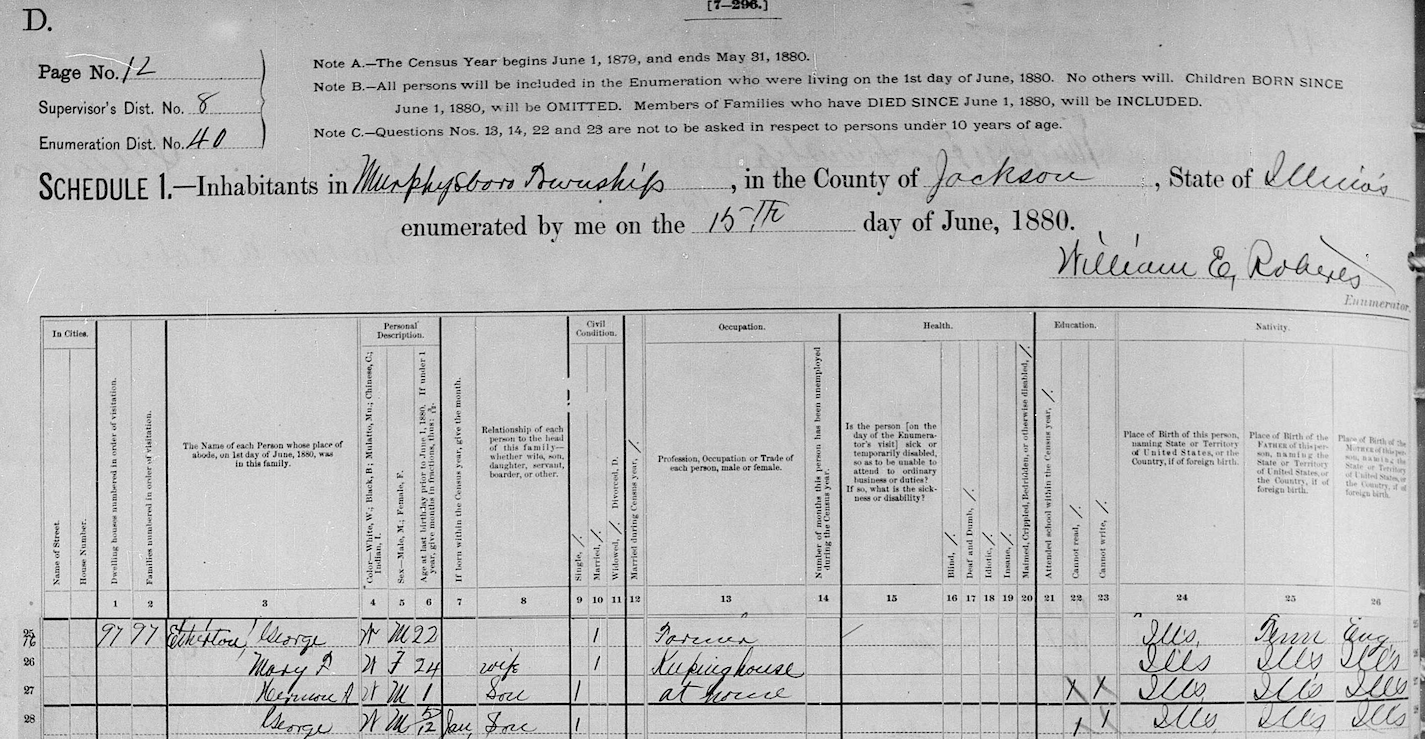 D.
[7–296.]
Page No. 12
Supervisor's Dist. No. 8
Enumeration Dist. No. 40
Note A.—The Census Year begins June 1, 1879, and ends May 31, 1880.
Note B.—All persons will be included in the Enumeration who were living on the 1st day of June, 1880. No others will. Children BORN SINCE
June 1, 1880, will be OMITTED. Members of Families who have DIED SINCE June 1, 1880, will be INCLUDED.
Note C.—Questions Nos. 13, 14, 22 and 23 are not to be asked in respect to persons under 10 years of age.
SCHEDULE 1.—Inhabitants in Murphysboro Township, in the County of Jackson, State of Illinois
enumerated by me on the 15TH day of June, 1880.
William E, Roberts
Enumerator.
In Cities.
Name of Street.
House Number.
Dwelling houses numbered in order of visitation.
Families numbered in order of visitation.
The Name of each Person whose place of
abode, on 1st day of June, 1880, was
in this family.
Personal
Description.
Color—White, W.; Black, B.; Mulatto, Mu.; Chinese, C.;
Indian, I.
Sex—Male, M.; Female, F.
Age at last birthday prior to June 1, 1880. If under 1
year, give months in fractions, thus: 3/12.
If born within the Census year, give the month.
Relationship of each
person to the head
of this family—
whether wife, son,
daughter, servant,
boarder, or other.
Civil
Condition.
Single, /.
Married, /.
Widowed, /. Divorced, D.
Married during Census year, /.
Occupation.
Profession, Occupation or Trade of
each person, male or female.
Number of months this person has been unemployed
during the Census year.
Health.
Is the person [on the
day of the Enumera-
tor's visit] sick or
temporarily disabled,
so as to be unable to
attend to ordinary
business or duties?
If so, what is the sick-
ness or disability?
Blind, /.
Deaf and Dumb, /.
Idiotic, /.
Insane, /.
Maimed, Crippled, Bedridden, or otherwise disabled, /.
Education.
Attended school within the Census year, /.
Cannot read, /.
Cannot write, /.
Nativity.
Place of Birth of this person,
naming State or Territory
of United States, or the
Country, if of foreign birth.
Place of Birth of the
FATHER of this per-
son, naming the
State or Territory
of United States, or
the Country, if of
foreign birth.
Place of Birth of the
MOTHER of this per-
son, naming the
State or Territory
of United States, or
the Country, if of
foreign birth.
1 2 3 4 5 6 7 8 9 10 11 12 13 14 15 16 17 18 19 20 21 22 23 24 25 26
25 97 97 Etherton, George W M 22 1 Farmer Ills, Tenn Eng
26 Mary W F 24 wife 1 Kepinghouse Ills Ills Ills
27 W M 1 Son 1 at home X X Ills Ills Ills
28 George W M 5/12 Jan, Son 1 X X Ills, Ills, Ills